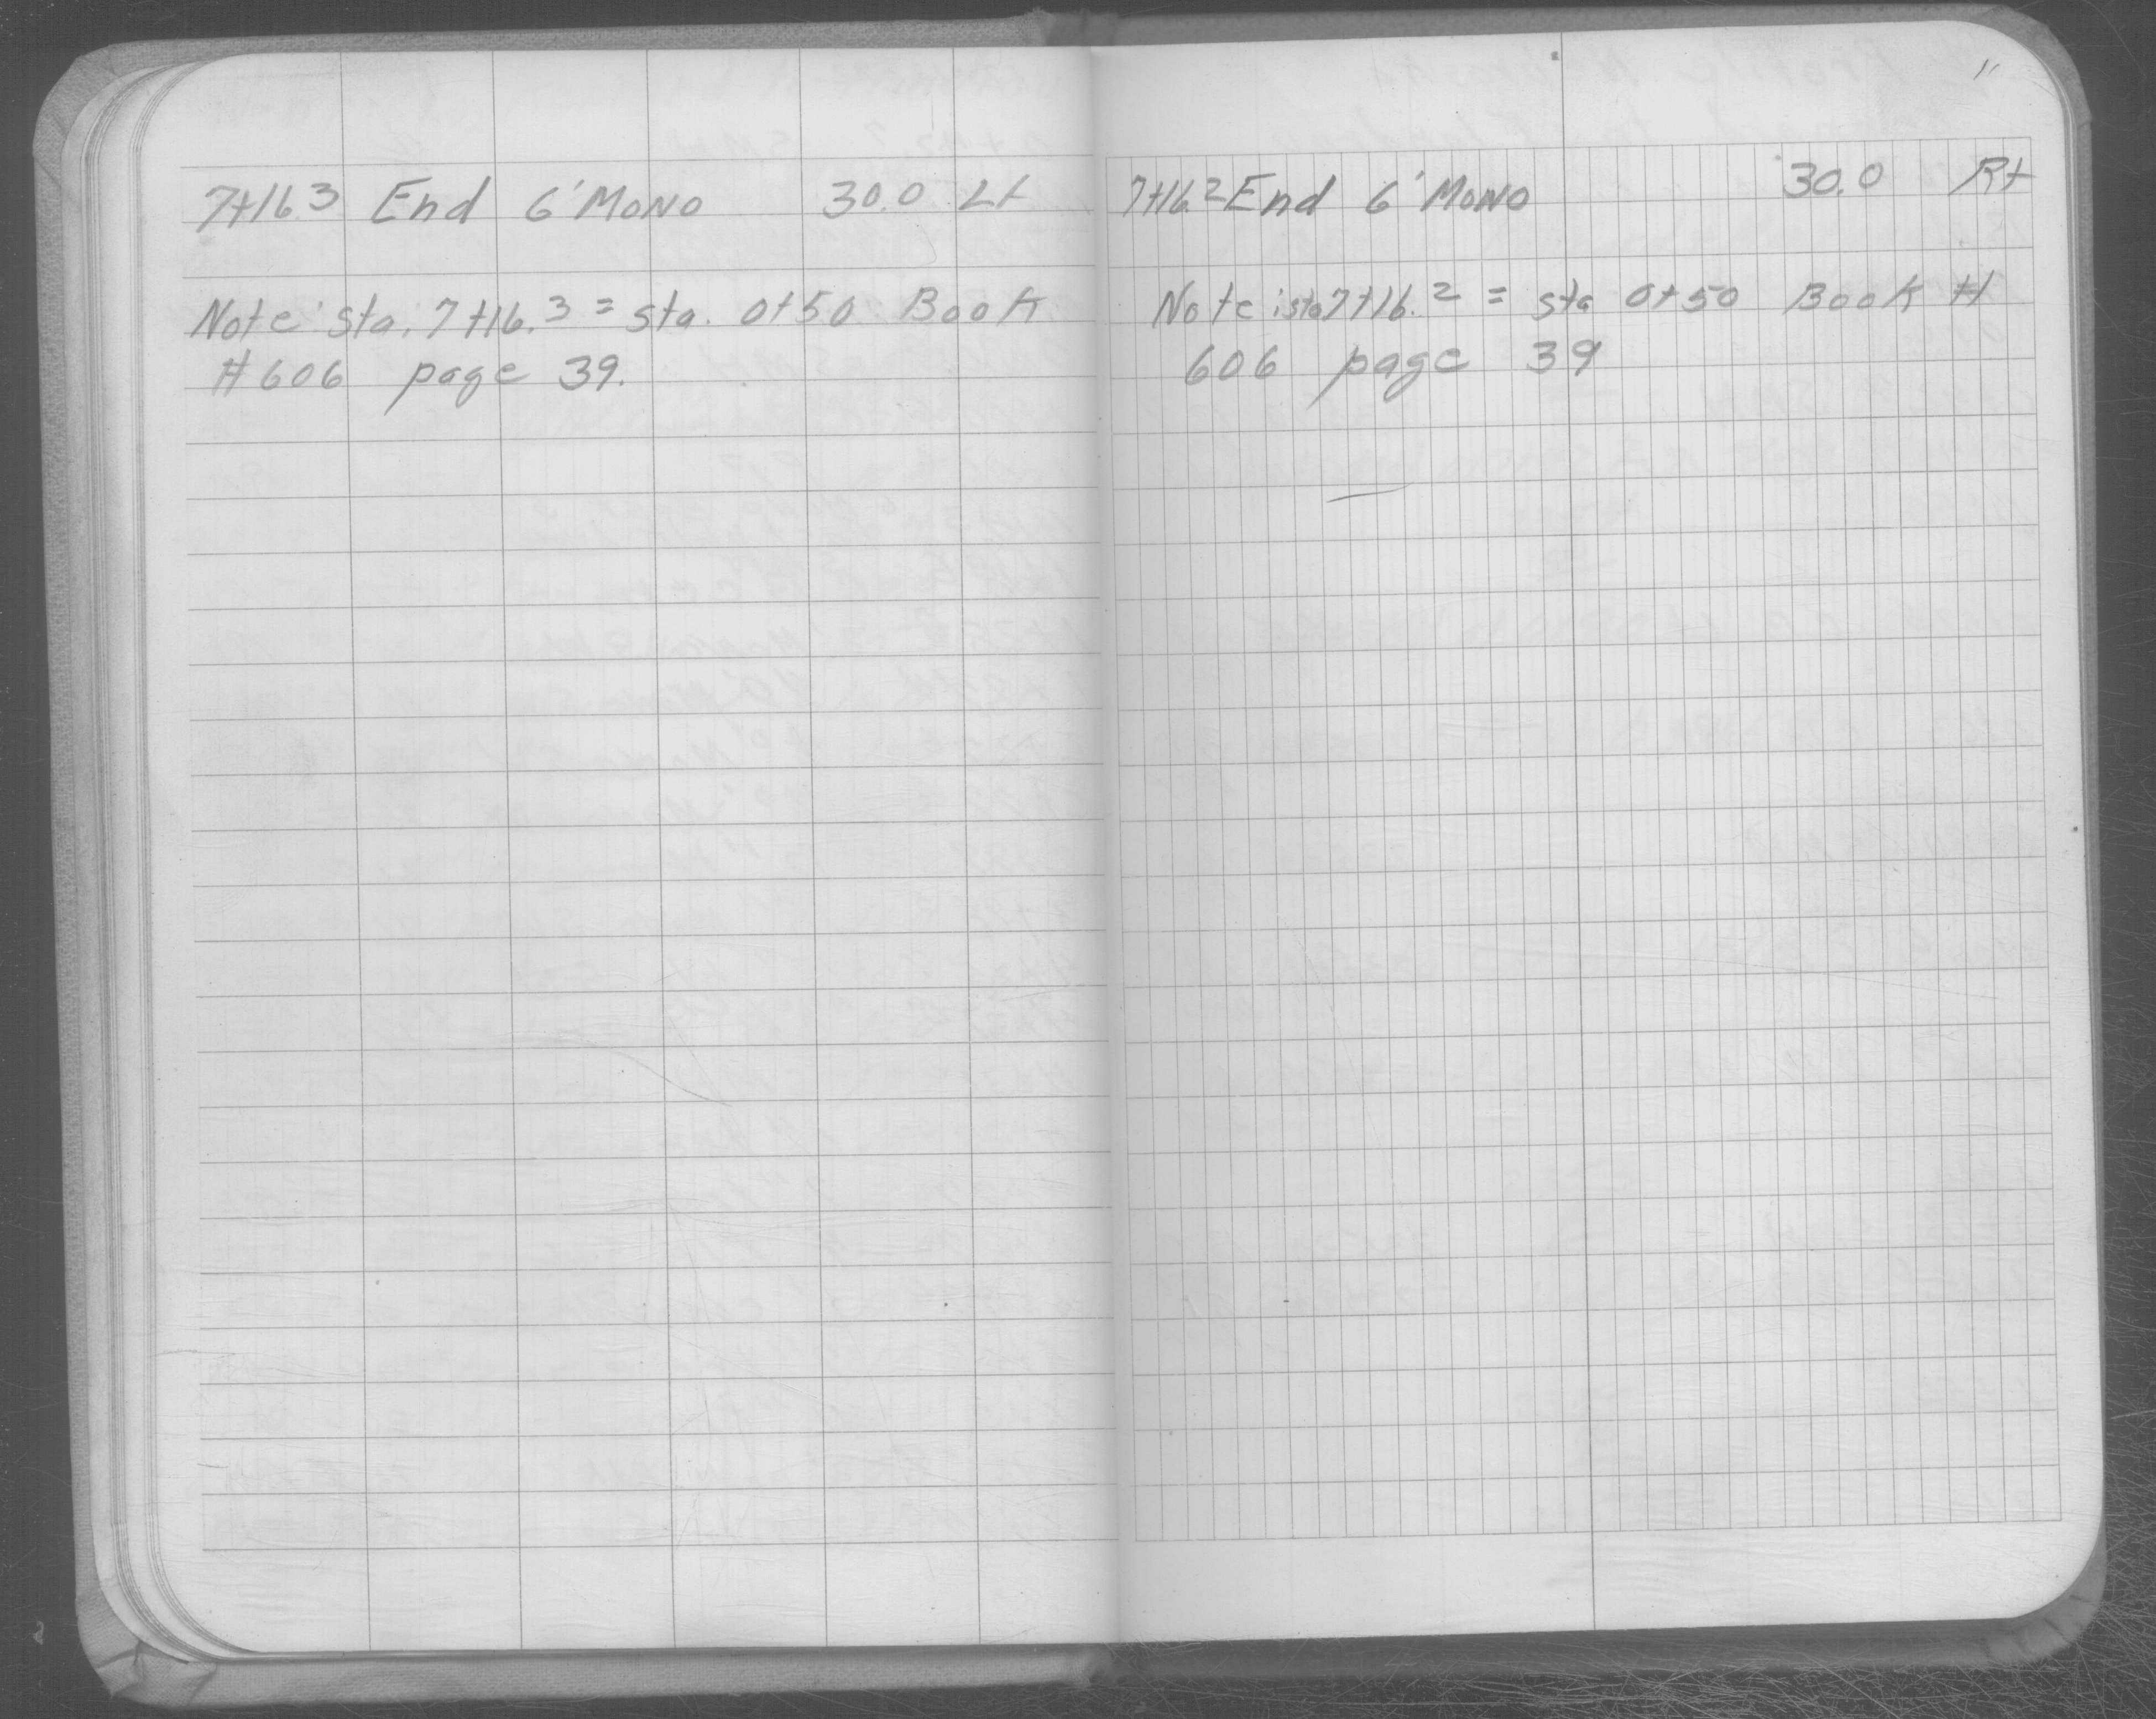 11
7+16.3 End 6' MONO 30.0 Lt
Note: sta. 7+16.3 = sta. 0+50 Book
#606 page 39.
7+16.2 End 6' MONO 30.0 Rt
Note: sta 7+16.2 = sta 0+50 Book #
606 page 39